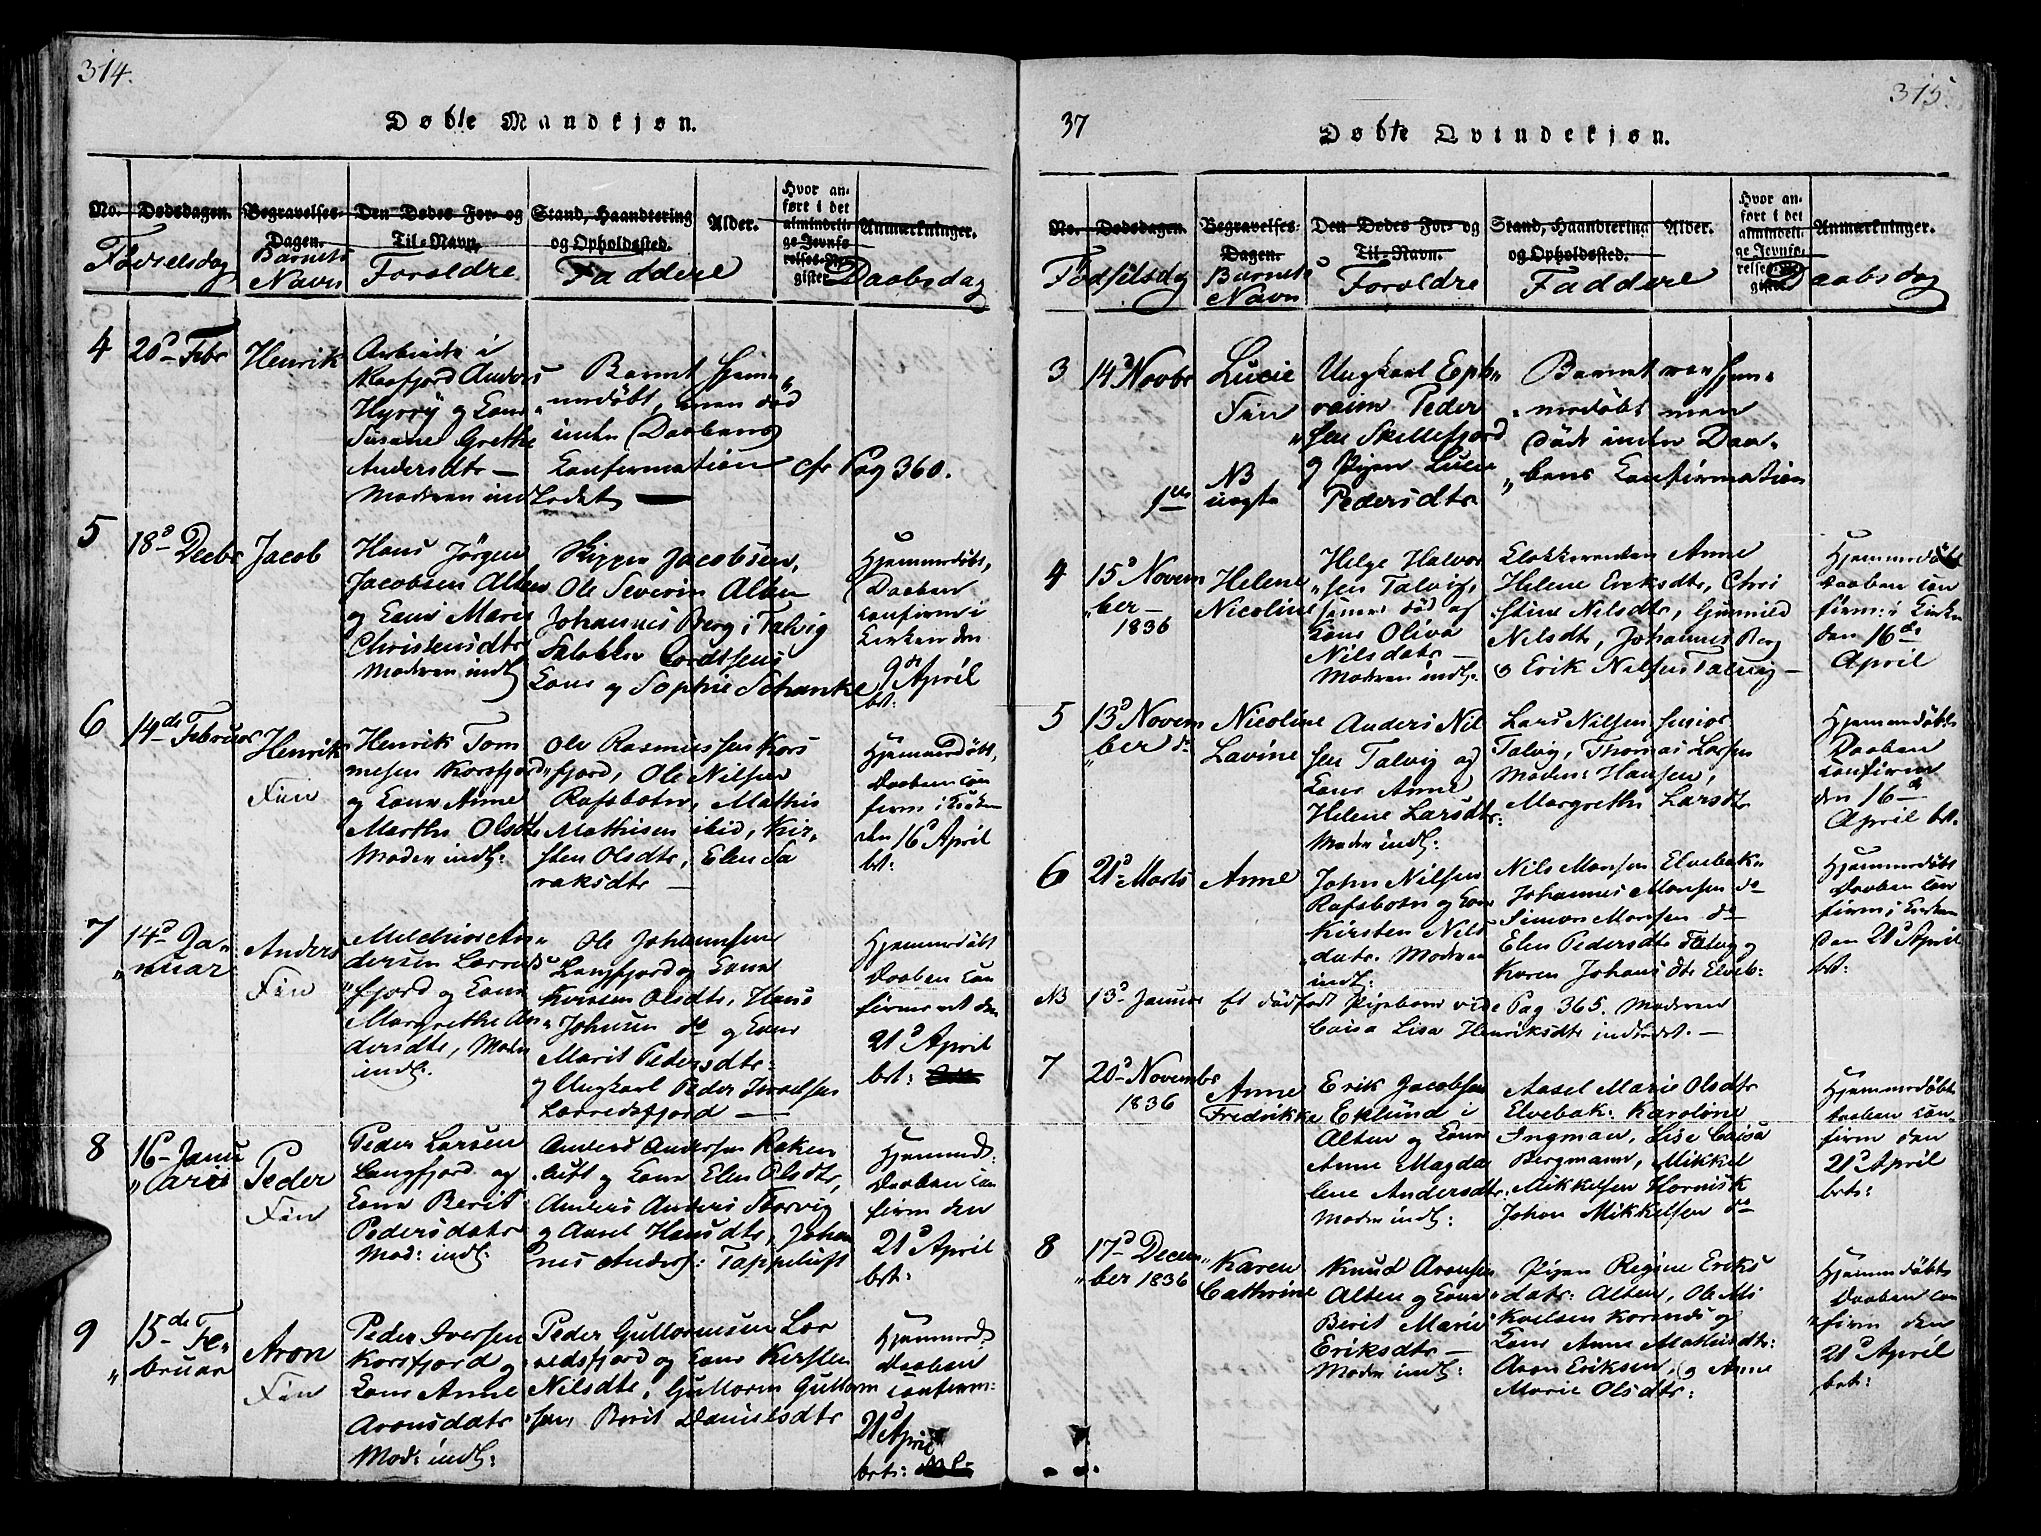 314.
Døbte Mandkjøn.
No. Dødsdagen. Begravelses-Dagen. Den Dødes For- og Til-Navn. Stand, Haandtering og Opholdssted. Alder. Hvor anført i det almindelige Jevnførelses-Register Anmærkninger.
Fødselsdag Barnets Navn Foreldre Faddere Daabsdag
4 20d Febr Henrik
Arbeider i
Kaafjord Anders
Hyrry og Kone
Susane Grethe
Andersdtr —
Moderen indledet —
Barnet hjem-
medøbt, men død
inden Daabens
Confirmation cfr Pag 360.
5 18d Decbr Jacob
Hans Jørgen
Jacobsen Alten
og Kone Maren
Christensdtr
Moderen indl
Skipper Jacobsen,
Ole Severin Alten
Johannes Berg i Talvig
Klokker Cordtsens
Kone og Sophie Schanke
Hjemmedøbt,
Daaben
confirm i
Kirken den
9de April
bet:
6 14de Februar Henrik
Fin
Henrik Tom
mesen Korsfjord
og Kone Anne
Marthe Olsdtr
Moder indl:
Ole Rasmussen Kors
fjord, Ole Nilsen
Rafsbotn, Mathis
Mathisen ibid, Kir-
sten Olsdtr, Elen Sa
raksdtr —
Hjemmedøbt,
Daaben con
firm i Kirken
den 16d April
bet:
7 14d Ja-
nuar
Anders
Fin
Melchior An-
dersen Lerreds
fjord og Kone
Margrethe An-
dersdtr, Moder
indl.
Ole Johannsen
Langfjord og Kone
Kirsten Olsdtr, Hans
Johnsen do og Kone
Marit Pedersdtr:
og Ungkarl Peder Isralsen
Lerredsfjord —
Hjemmedøbt
Daaben con
firmeret den
21d April
bet:
8 16- Janu
arii
Peder
Fin
Peder Larsen
Langfjord og
Kone Berit
Pedersdatr
Mod: indl:
Anders Andersen Raken
luft og Kone Elen Olsdtr,
Anders Anders Storvig
og Aasel Hansdtr, Johan
nes Anders: Tappeluft
Hjemmed:
Daaben con
firm den
21d April
bet:
9 15de Fe-
bruar
Aron
Fin
Peder Iversen
Korsfjord og
Kone Anne
Aronsdatr
Mod: indl:
Peder Guttormsen Ler
redsfjord og Kone Kirsten
Nilsdtr, Guttorm Guttorm
sen, Berit Danielsdtr
Hjemmed:
Daaben
confirm:
21d April
bet:
37
315.
Døbte Qvindekjøn.
No. Dødsdagen. Begravelses-Dagen. Den Dødes For- og Til-Navn. Stand, Haandtering og Opholdssted. Alder. Hvor anført i det almindelige Jevnførelses-Register Anmærkninger.
Fødselsdag Barnets Navn Foreldre Faddere Daabsdag
3 14d Novbr Lucie
Fin
NB
1ste uægte
Ungkarl Eph-
raim Peder
sen Skillefjord
og Pigen Lucie
Pedersdtr
Barnet var hjem-
medøbt men
døde inden Daa-
bens Confirmation
4 15d Novem
ber —
1836
Helene
Nicoline
Helge Halvor
sen Talvig,
senere død og
Kone Oliva
Nilsdatr —
Moderen indl:
Klokkerenken Anne
Helene Eriksdtr, Chri
stine Nilsdtr, Gunnild
Nilsdtr, Johannes Berg
og Erik Nilsen Talvig —
Hjemmedøbt
Daaben con
firm: i Kirken
den 16de
April
5 13d Novem
ber do
Nicoline
Lavine
Anders Nil
sen Talvig og
Kone Anne
Helene Larsdtr:
Moder indl:
Lars Nilsen senior
Talvig, Thomas Larsen
Madm: Hansen,
Margrethe Larsdtr
Hjemmedøbt
Daaben
confirm
den 16de
April bet.
6 21d Marts Anne
John Nilsen
Rafsbotn og Kone
Kirsten Nils
datr. Moderen
indl:
Nils Monsen Elvebak
Johannes Monsen do
Simon Monsen do
Elen Pedersdtr Talvig
Karen Johansdtr Elveb:
Hjemmedøbt
Daaben con
firm i Kirken
den 21d April
bet:
NB 13d Januar Et dødfødt Pigebarn vide Pag 365. Moderen
Caisa Lisa Henriksdtr indledet. —
7 20d Novembr
1836
Anne
Fredrikke
Erik Jacobsen
Eklund i
Alten og Kone
Anne Magda
lene Andersdtr:
Moder indl:
Aasel Marie Olsdtr
Elvebak: Karoline
Ingman, Lise Caisa
Bergmann, Mikkel
Mikkelsen Hornisk
Johan Mikkelsen do
Hjemmedøbt
Daaben con
firm den
21d April
bet:
8 17d Decem
ber 1836
Karen
Cathrine
Knud Aronsen
Alten og Kone
Berit Marie
Eriksdtr —
Moder indl:
Pigen Regine Eriks
datr: Alten, Ole Mi
kelsen Korsnes og
Kone Anne Mathisdtr:
Aron Eriksen, og Anne
Marie Olsdtr:
Hjemmedøbt
Daaben con
firm den
21d April
bet: